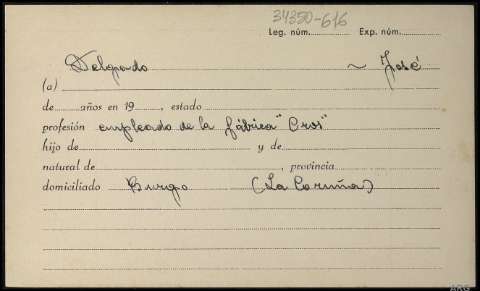 34350-616
Leg. núm. Exp. núm.
Delgado ~ José
(a)
de años en 19 , estado
profesión empleado de la fábrica "Cros"
hijo de y de
natural de , provincia
domiciliado Burgo (La Coruña)
ARG